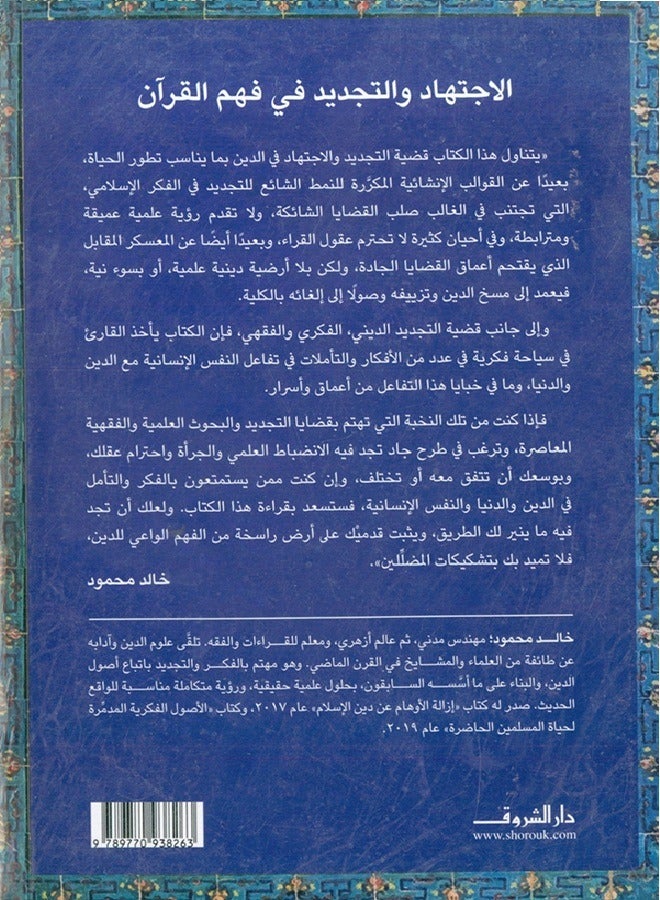 الاجتهاد والتجديد في فهم القرآن
«يتناول هذا الكتاب قضية التجديد والاجتهاد في الدين بما يناسب تطور الحياة،
بعيدًا عن القوالب الإنشائية المكرَّرة للنمط الشائع للتجديد في الفكر الإسلامي،
التي تجتنب في الغالب صلب القضايا الشائكة، ولا تقدم رؤية علمية عميقة
ومترابطة، وفي أحيان كثيرة لا تحترم عقول القراء، وبعيدًا أيضًا عن المعسكر المقابل
الذي يقتحم أعماق القضايا الجادة، ولكن بلا أرضية دينية علمية، أو بسوء نية،
فيعمد إلى مسخ الدين وتزييفه وصولًا إلى إلغائه بالكلية.
وإلى جانب قضية التجديد الديني، الفكري والفقهي، فإن الكتاب يأخذ القارئ
في سياحة فكرية في عدد من الأفكار والتأملات في تفاعل النفس الإنسانية مع الدين
والدنيا، وما في خبايا هذا التفاعل من أعماق وأسرار.
فإذا كنت من تلك النخبة التي تهتم بقضايا التجديد والبحوث العلمية والفقهية
المعاصرة، وترغب في طرح جاد تجد فيه الانضباط العلمي والجرأة واحترام عقلك،
وبوسعك أن تتفق معه أو تختلف، وإن كنت ممن يستمتعون بالفكر والتأمل
في الدين والدنيا والنفس الإنسانية، فستسعد بقراءة هذا الكتاب. ولعلك أن تجد
فيه ما ينير لك الطريق، ويثبت قدميْك على أرض راسخة من الفهم الواعي للدين،
فلا تميد بك بتشكيكات المضلِّلين».
خالد محمود
خالد محمود؛ مهندس مدني، ثم عالم أزهري، ومعلم للقراءات والفقه. تلقَّى علوم الدين وآدابه
عن طائفة من العلماء والمشايخ في القرن الماضي. وهو مهتم بالفكر والتجديد باتباع أصول
الدين، والبناء على ما أسَّسه السابقون، بحلول علمية حقيقية، ورؤية متكاملة مناسبة للواقع
الحديث. صدر له كتاب «إزالة الأوهام عن دين الإسلام» عام ٢٠١٧، وكتاب «الأصول الفكرية المدمِّرة
لحياة المسلمين الحاضرة» عام ٢٠١٩.
دار الشروق
www.shorouk.com
9 789770 938263